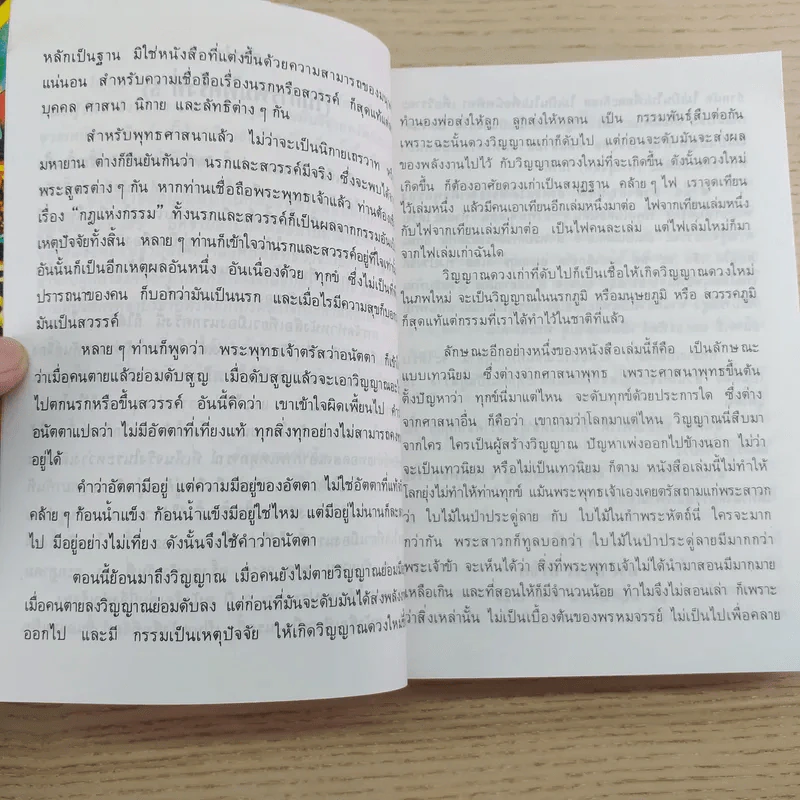 หลักเป็นฐาน มิใช่หนังสือที่แต่งขึ้นด้วยความสามารถของมนุษย์
แน่นอน สำหรับความเชื่อถือเรื่องนรกหรือสวรรค์ ก็สุดแท้แต่
บุคคล ศาสนา นิกาย และลัทธิต่าง ๆ กัน
สำหรับพุทธศาสนาแล้ว ไม่ว่าจะเป็นนิกายเถรวาท
มหายาน ต่างก็ยืนยันกันว่า นรกและสวรรค์มีจริง ซึ่งจะพบได้
พระสูตรต่าง ๆ กัน หากท่านเชื่อถือพระพุทธเจ้าแล้ว ท่านต้อง
เรื่อง “กฎแห่งกรรม” ทั้งนรกและสวรรค์ก็เป็นผลจากกรรม
เหตุปัจจัยทั้งสิ้น หลาย ๆ ท่านก็เข้าใจว่านรกและสวรรค์อยู่ที่ใจ
อันนั้นก็เป็นอีกเหตุผลอันหนึ่ง อันเนื่องด้วย ทุกข์ ซึ่งไม่เป็นที่
ปรารถนาของคน ก็บอกว่ามันเป็นนรก และเมื่อไรมีความสุขก็บอก
มันเป็นสวรรค์
หลาย ๆ ท่านก็พูดว่า พระพุทธเจ้าตรัสว่าอนัตตา ก็
ว่าเมื่อคนตายแล้วย่อมดับสูญ เมื่อดับสูญแล้วจะเอาวิญญาณ
ไปตกนรกหรือขึ้นสวรรค์ อันนี้คิดว่า เขาเข้าใจผิดเพี้ยนไป คำ
อนัตตาแปลว่า ไม่มีอัตตาที่เที่ยงแท้ ทุกสิ่งทุกอย่างไม่สามารถคง
อยู่ได้
คำว่าอัตตามีอยู่ แต่ความมีอยู่ของอัตตา ไม่ใช่อัตตาที่แท้
คล้าย ๆ ก้อนน้ำแข็ง ก้อนน้ำแข็งมีอยู่ใช่ไหม แต่มีอยู่ไม่นานก็ละลาย
ไป มีอยู่อย่างไม่เที่ยง ดังนั้นจึงใช้คำว่าอนัตตา
ตอนนี้ย้อนมาถึงวิญญาณ เมื่อคนยังไม่ตายวิญญาณย่อมมี
เมื่อคนตายลงวิญญาณย่อมดับลง แต่ก่อนที่มันจะดับมันได้ส่งพลัง
ออกไป และมี กรรมเป็นเหตุปัจจัย ให้เกิดวิญญาณดวงใหม่
ทำนองพ่อส่งให้ลูก ลูกส่งให้หลาน เป็น กรรมพันธุ์สืบต่อกัน
เพราะฉะนั้นดวงวิญญาณเก่าก็ดับไป แต่ก่อนจะดับมันจะส่งผล
ของพลังงานไปไว้ กับวิญญาณดวงใหม่ที่จะเกิดขึ้น ดังนั้นดวงใหม่
เกิดขึ้น ก็ต้องอาศัยดวงเก่าเป็นสมุฏฐาน คล้าย ๆ ไฟ เราจุดเทียน
ไว้เล่มหนึ่ง แล้วมีคนเอาเทียนอีกเล่มหนึ่งมาต่อ ไฟจากเทียนเล่มหนึ่ง
กับไฟจากเทียนเล่มที่มาต่อ เป็นไฟคนละเล่ม แต่ไฟเล่มใหม่ก็มา
จากไฟเล่มเก่าฉันใด
วิญญาณดวงเก่าที่ดับไปก็เป็นเชื้อให้เกิดวิญญาณดวงใหม่
ในภพใหม่ จะเป็นวิญญาณในนรกภูมิ หรือมนุษยภูมิ หรือ สวรรคภูมิ
ก็สุดแท้แต่กรรมที่เราได้ทำไว้ในชาติที่แล้ว
ลักษณะอีกอย่างหนึ่งของหนังสือเล่มนี้ก็คือ เป็นลักษณะ
แบบเทวนิยม ซึ่งต่างจากศาสนาพุทธ เพราะศาสนาพุทธขึ้นต้น
ตั้งปัญหาว่า ทุกข์นี่มาแต่ไหน จะดับทุกข์ด้วยประการใด ซึ่งต่าง
จากศาสนาอื่น ก็คือว่า เขาถามว่าโลกมาแต่ไหน วิญญาณนี่สืบมา
จากใคร ใครเป็นผู้สร้างวิญญาณ ปัญหาเพ่งออกไปข้างนอก ไม่ว่า
จะเป็นเทวนิยม หรือไม่เป็นเทวนิยม ก็ตาม หนังสือเล่มนี้ไม่ทำให้
โลกยุ่งไม่ทำให้ท่านทุกข์ แม้นพระพุทธเจ้าเองเคยตรัสถามแก่พระสาวก
ว่า ใบไม้ในป่าประดู่ลาย กับ ใบไม้ในกำพระหัตถ์นี่ ใครจะมาก
กว่ากัน พระสาวกก็ทูลบอกว่า ใบไม้ในป่าประดู่ลายมีมากกว่า
พระเจ้าข้า จะเห็นได้ว่า สิ่งที่พระพุทธเจ้าไม่ได้นำมาสอนมีมากมาย
เหลือเกิน และที่สอนให้ก็มีจำนวนน้อย ทำไมจึงไม่สอนเล่า ก็เพราะ
ว่าสิ่งเหล่านั้น ไม่เป็นเบื้องต้นของพรหมจรรย์ ไม่เป็นไปเพื่อคลาย